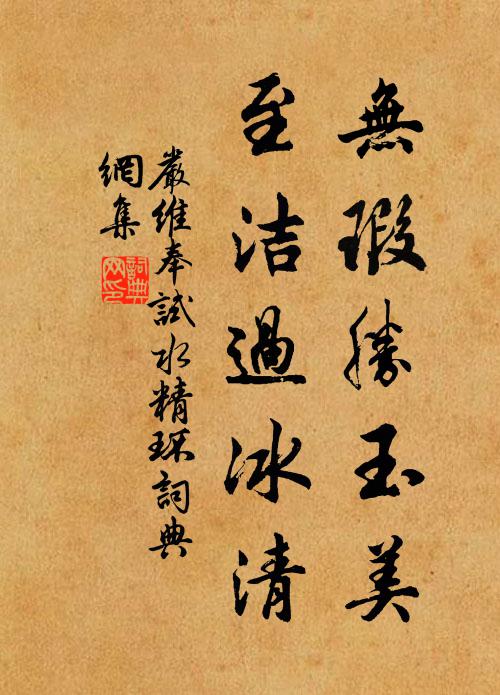 無瑕勝玉美
至洁過冰清
嚴維奉試水精環詞典
網集
詞典網印